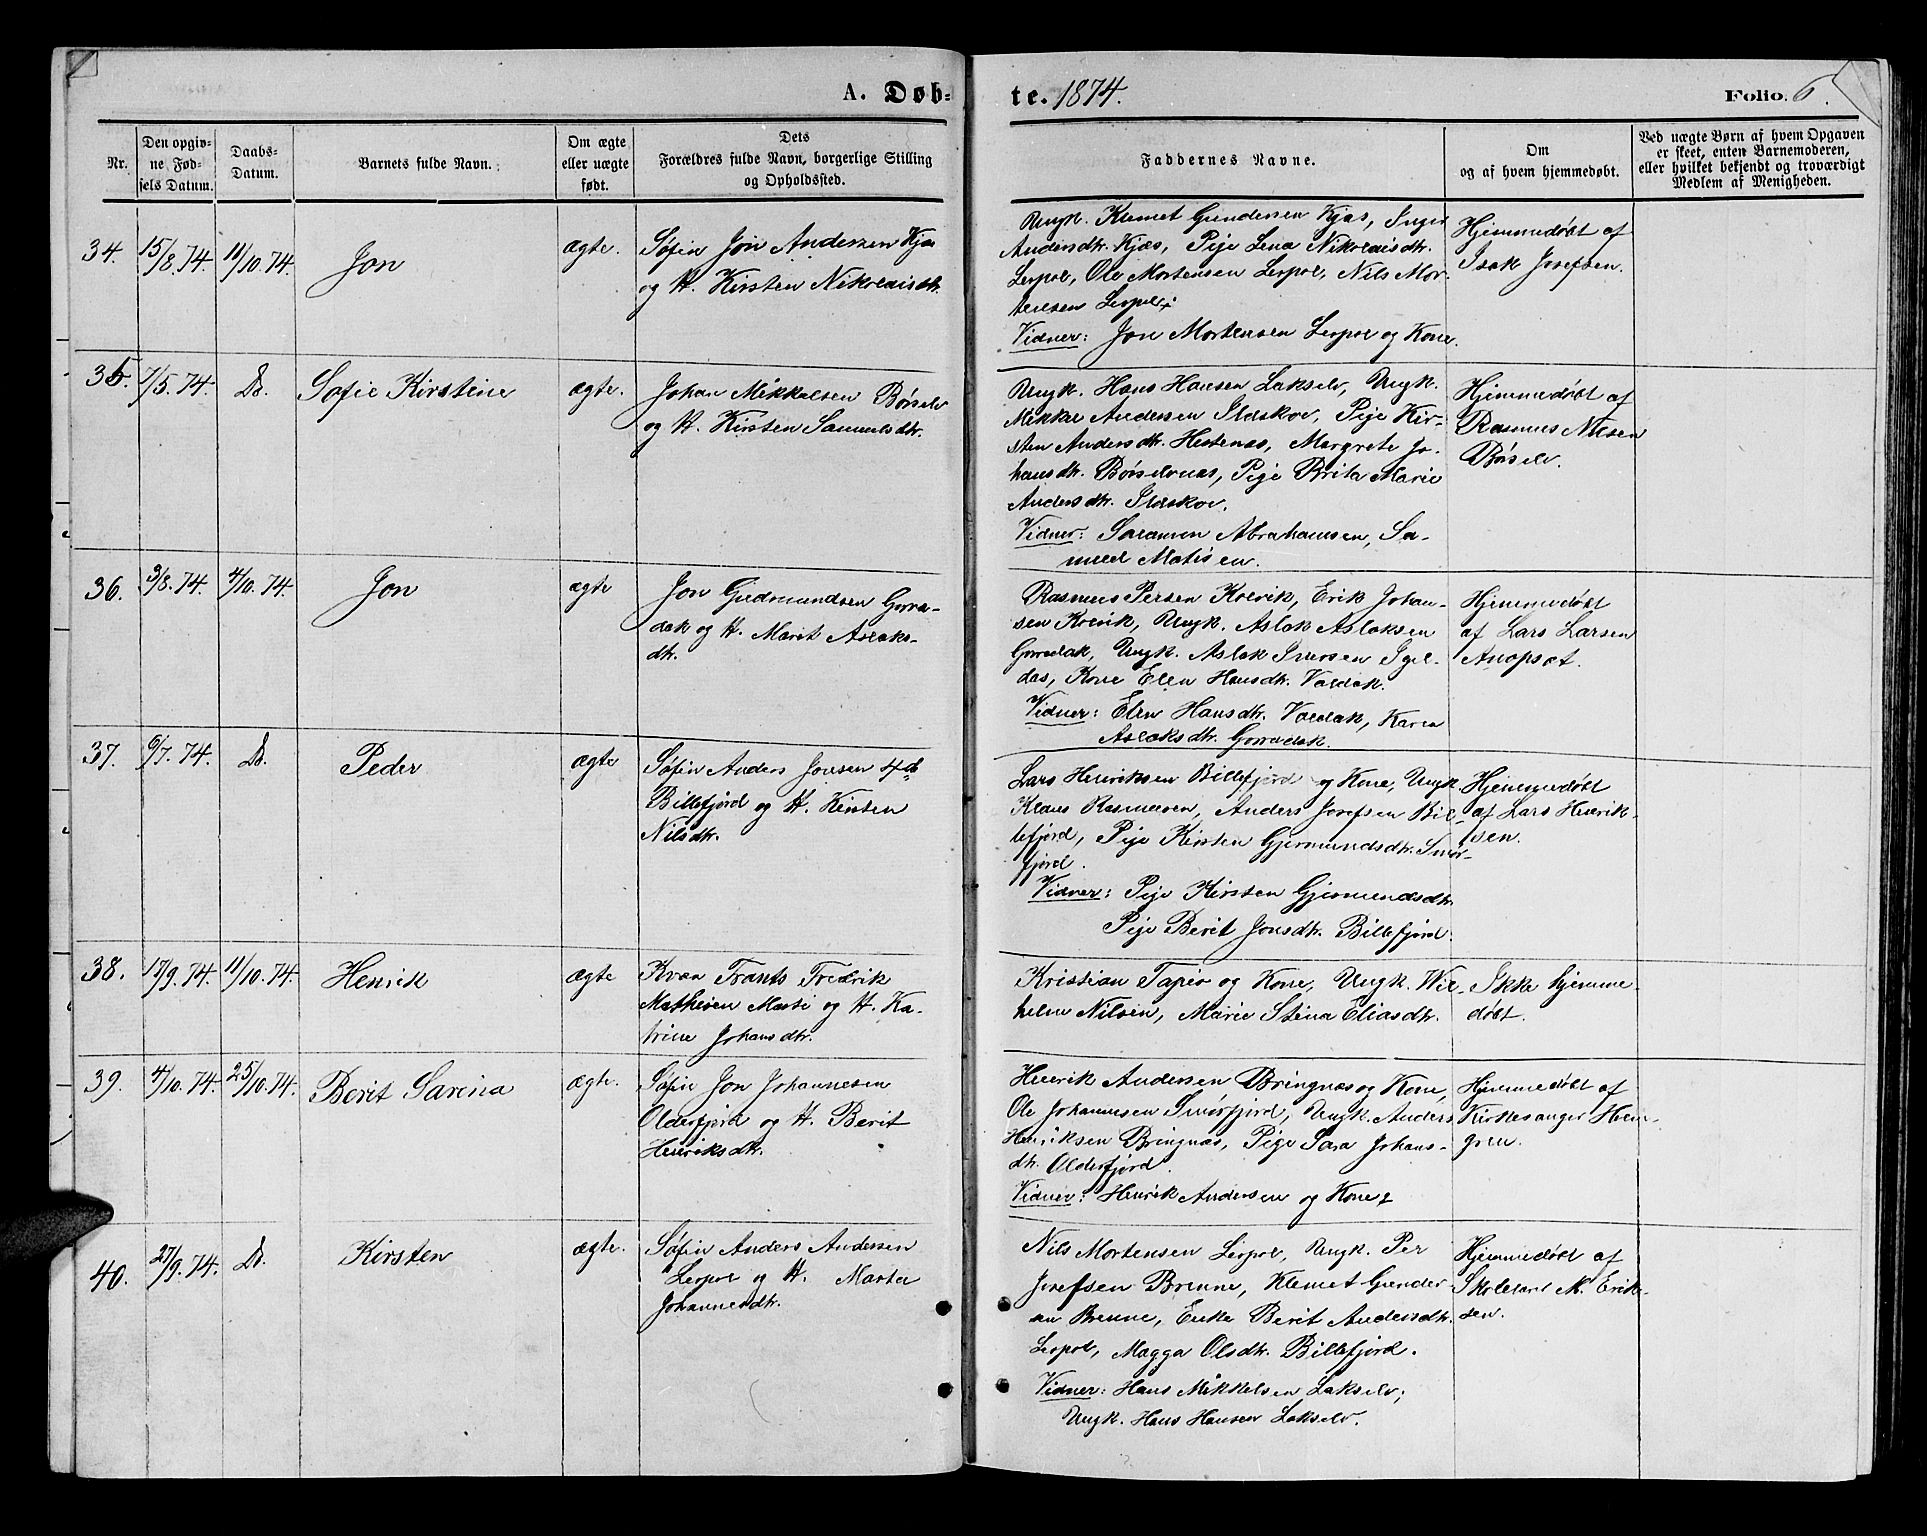 A. Døb-
te. 1874.
Folio. 6.
Nr.
Den opgiv-
ne Fød-
sels Datum.
Daabs-
Datum.
Barnets fulde Navn.
Om ægte
eller uægte
født.
Dets
Forældres fulde Navn, borgerlige Stilling
og Opholdssted.
Faddernes Navne.
Om
og af hvem hjemmedøbt.
Ved uægte Børn af hvem Opgaven
er skeet, enten Barnemoderen,
eller hvilket bekjendt og troværdigt
Medlem af Menigheden.
34. 15/8. 74. 11/10. 74. Jon ægte.
Søfin Jon Andersen Kjæs
og H. Kirsten Nikolaisdtr.
Ungk. Klemet Gundersen Kjæs, Inger
Andersdtr. Kjæs, Pige Lena Nikolaisdtr.
Lerpol, Ole Mortensen Lerpol, Nils Mor-
tensen Lerpol.
Vidner: Jon Mortensen Lerpol og Kone.
Hjemmedøbt af
Isak Josefsen.
35. 7/5. 74. Do. Sofie Kirstine ægte.
Johan Mikkelsen Børselv
og H. Kirsten Samuelsdtr.
Ungk. Hans Hansen Lakselv, Ungk.
Mikkel Andersen Ildskov, Pige Kir-
sten Andersdtr. Hestenæs, Margrete Jo-
hansdtr. Børselvnæs, Pige Brita Marie
Andersdtr. Ildskov.
Vidner: Salamon Abrahamsen, Sa-
muel Matisen.
Hjemmedøbt af
Rasmus Nilsen
Børselv.
36. 3/8. 74. 4/10. 74. Jon ægte
Jon Gudmundsen Gorra-
dak og H. Marit Aslaks-
dtr.
Rasmus Persen Kolvik, Erik Johan-
sen Kolvik, Ungk. Aslak Aslaksen
Gorradak, Ungk. Aslak Iversen Igel-
das, Kone Elen Hansdtr. Valdak.
Vidner: Elen Hansdtr. Valdak, Karen
Aslaksdtr. Gorradak.
Hjemmedøbt
af Lars Larsen
Anopsæt.
37. 6/7. 74. Do. Peder ægte
Søfin Anders Jonsen 4de
Billefjord og H. Kirsten
Nilsdtr.
Lars Henriksen Billefjord og Kone, Ungk.
Klaus Rasmussen, Anders Josefsen Bil-
lefjord, Pige Kirsten Gjermundsdtr. Smør-
fjord.
Vidner: Pige Kirsten Gjermundsdtr.
Pige Berit Jonsdtr. Billefjord.
Hjemmedøbt
af Lars Henrik-
sen.
38. 17/9. 74. 11/10. 74. Henrik ægte
Kvæn Frants Fredrik
Mathisen Marti og H. Ka-
trine Johansdtr.
Kristian Tapio og Kone, Ungk. Wil-
helm Nilsen, Marie Stina Eliasdtr.
Ikke hjemme-
døbt.
39. 4/10. 74. 25/10. 74. Berit Sarina ægte.
Søfin Jon Johannesen
Olderfjord og H. Berit
Henriksdtr.
Henrik Andersen Bringnæs og Kone,
Ole Johannesen Smørfjord, Ungk. Anders
Henriksen Bringnæs, Pige Sara Johans-
dtr. Olderfjord.
Vidner: Henrik Andersen og Kone
Hjemmedøbt af
Kirkesanger Hem-
gren.
40. 27/9. 74. Do. Kirsten ægte.
Søfin Anders Andersen
Lerpol og H. Marta
Johannesdtr.
Nils Mortensen Lerpol, Ungk. Per
Josefsen Brenne, Klemet Gunder-
sen Brenne, Enke Berit Andersdtr.
Lerpol, Magga Olsdtr. Billefjord.
Vidner: Hans Mikkelsen Lakselv,
Ungk. Hans Hansen Lakselv.
Hjemmedøbt af
Skolelærer M. Erik-
sen.